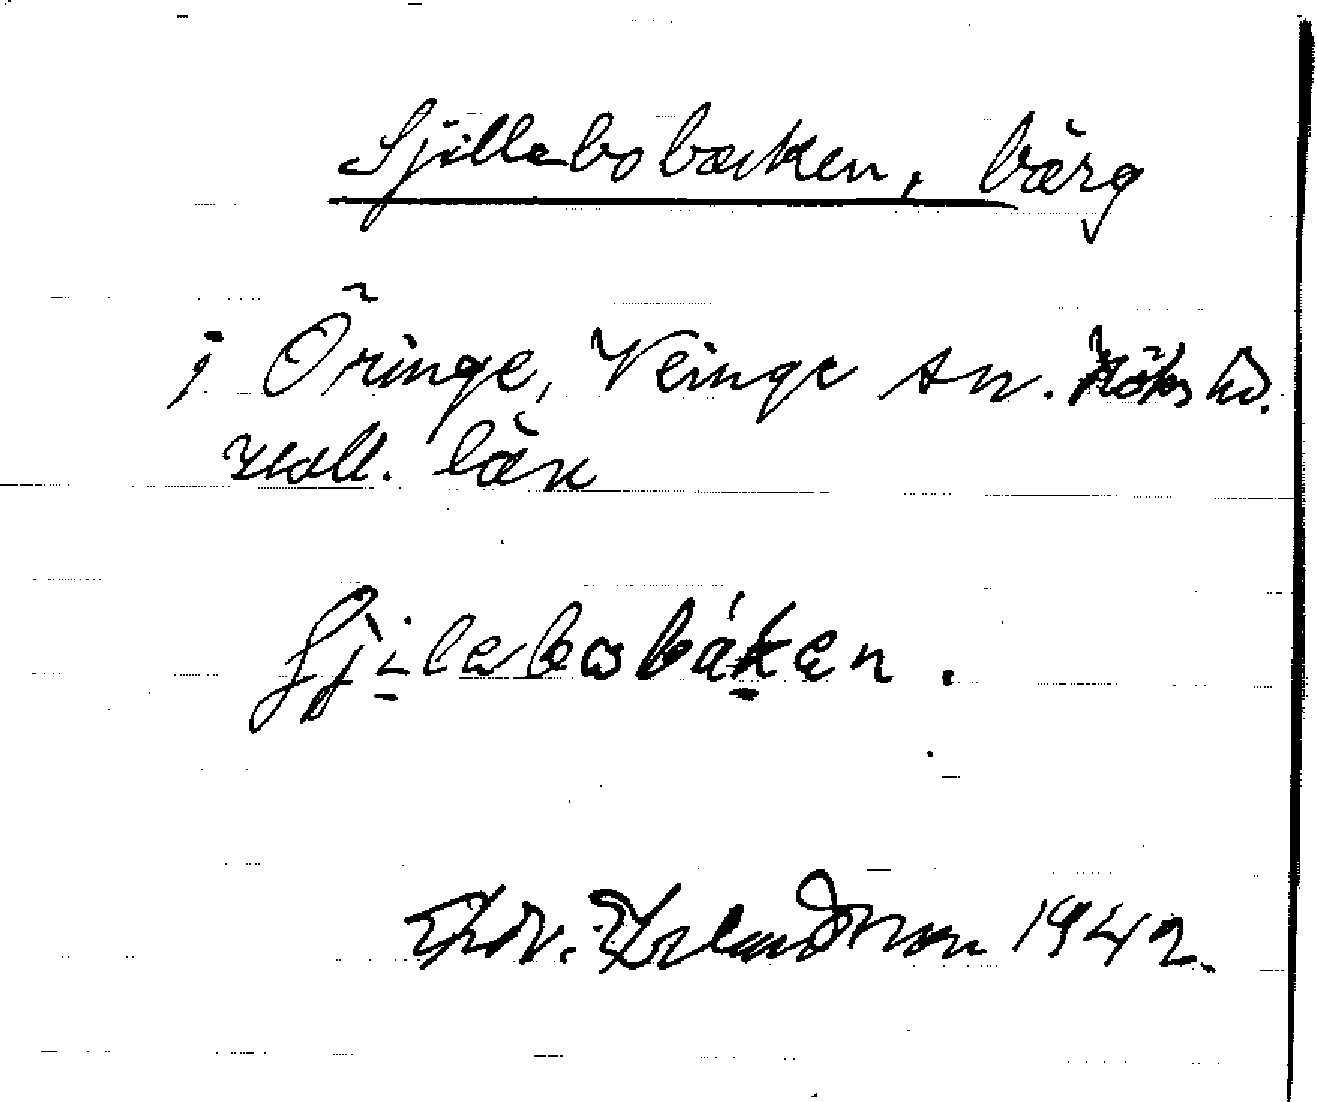 Sjillebobacken, bärg
i Öringe, Veinge sn. Höks hd.
Hall. län
Sjilebobáken.
1942.